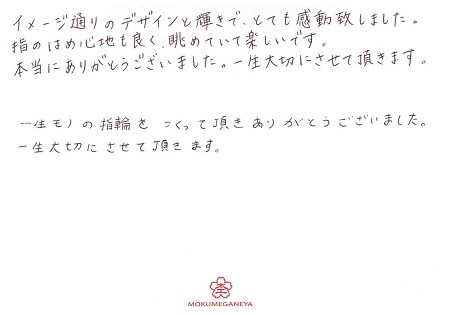 イメージ通りのデザインと輝きで、とても感動致しました。
指のはめ心地も良く、眺めていて楽しいです。
本当にありがとうございました。一生大切にさせて頂きます。
一生モノの指輪を つくって頂きありがとうございました。
一生大切にさせて頂きます。
MOKUMEGANEYA